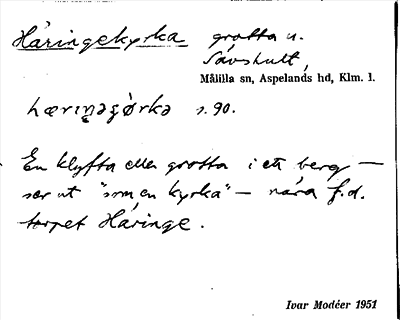 Håringekyrka grotta u.
Sävshult,
Målilla sn, Aspelands hd, Klm. l.
s. 90.
En klyfta eller grotta i ett berg —
ser ut "som en kyrka" — nära f.d.
torpet Håringe.
Ivar Modéer 1951